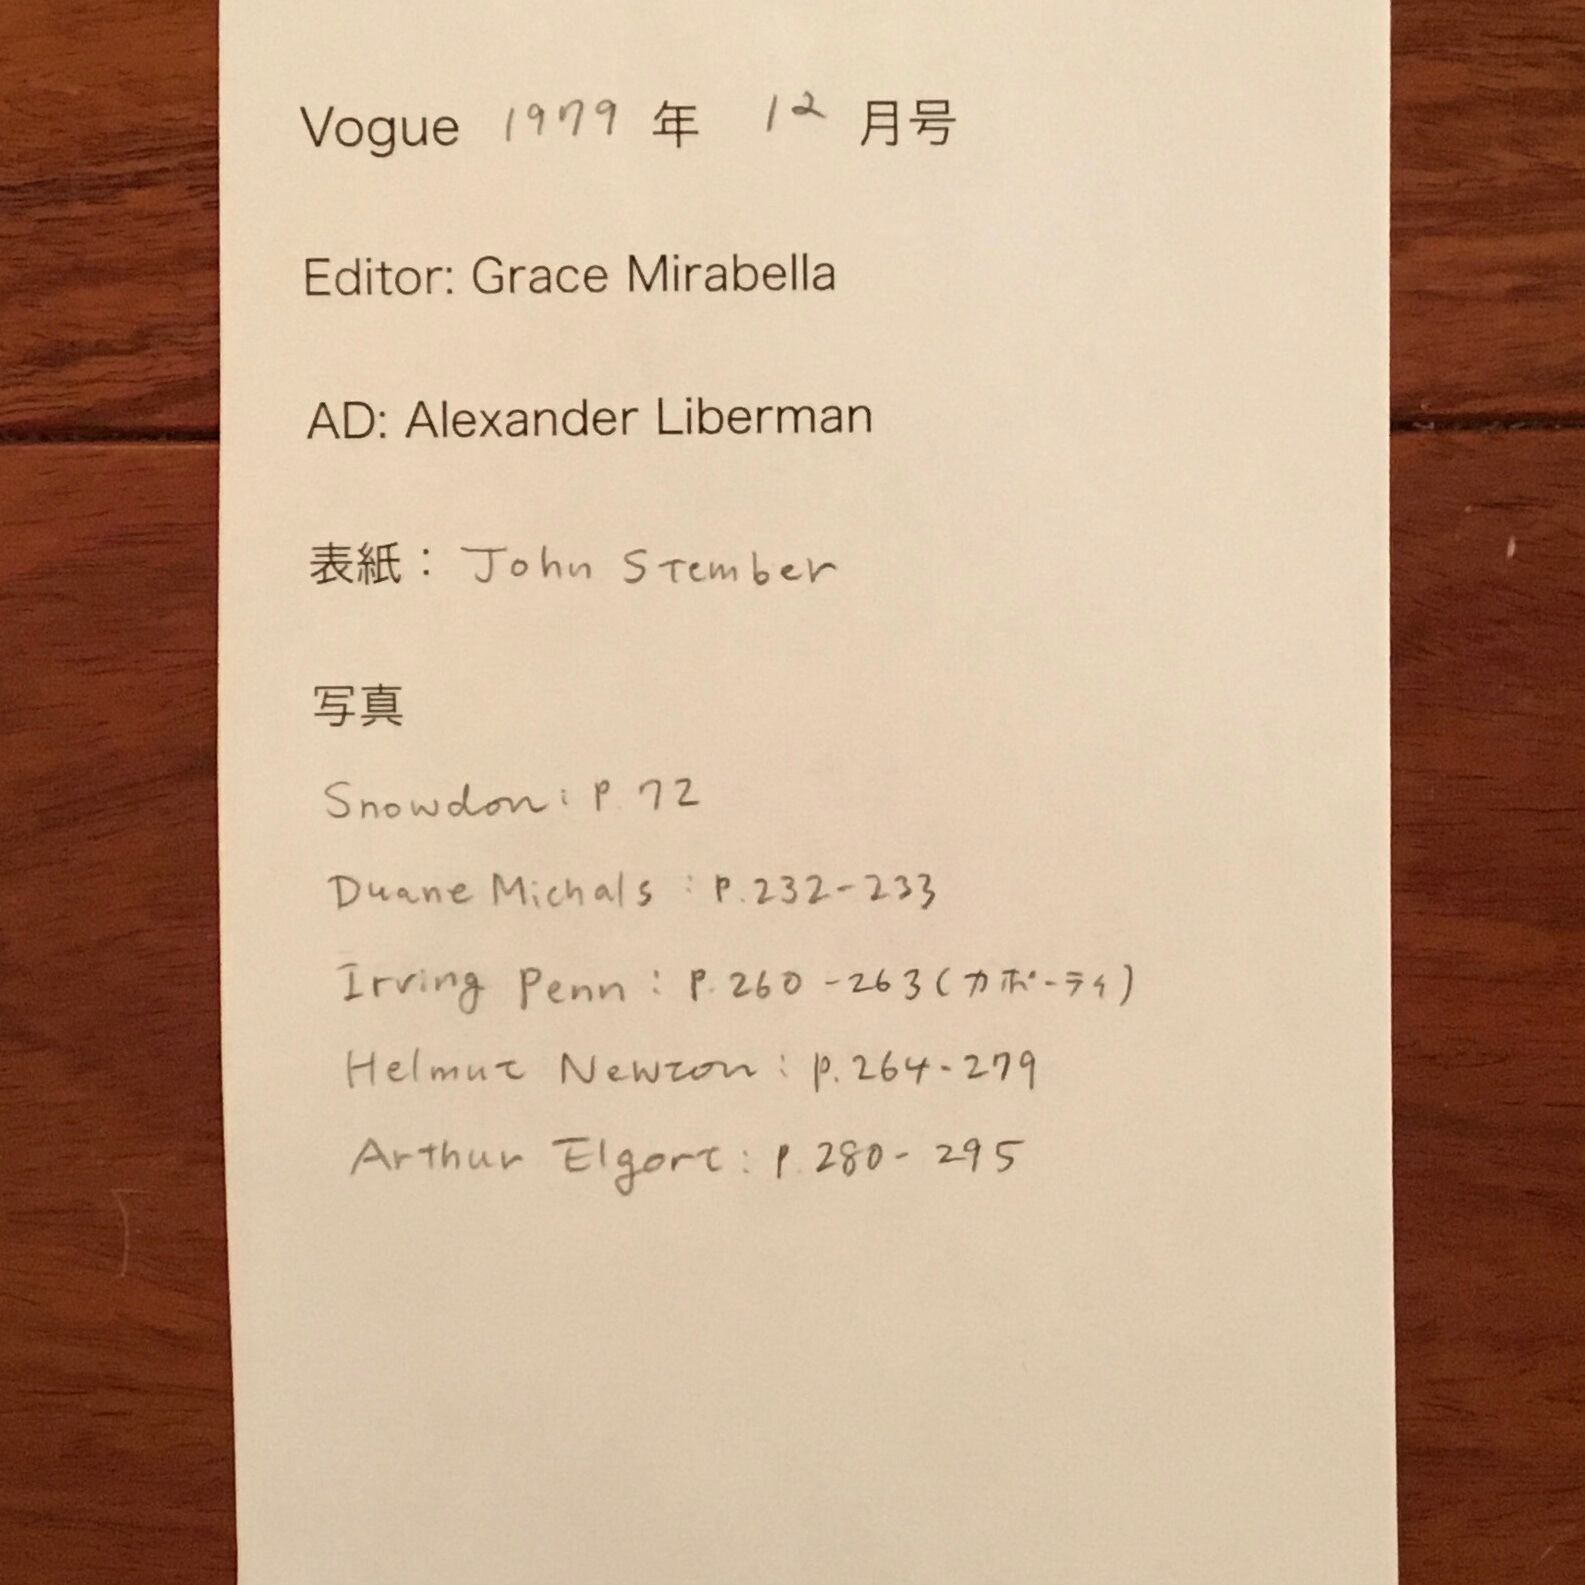 Vogue 1979 年 12 月号
Editor: Grace Mirabella
AD: Alexander Liberman
表紙： John Stember
写真
Snowdon: P.72
Duane Michals : P.232-233
Irving Penn : P.260-263(カポーティ)
Helmut Newton : p.264-279
Arthur Elgort : P.280-295